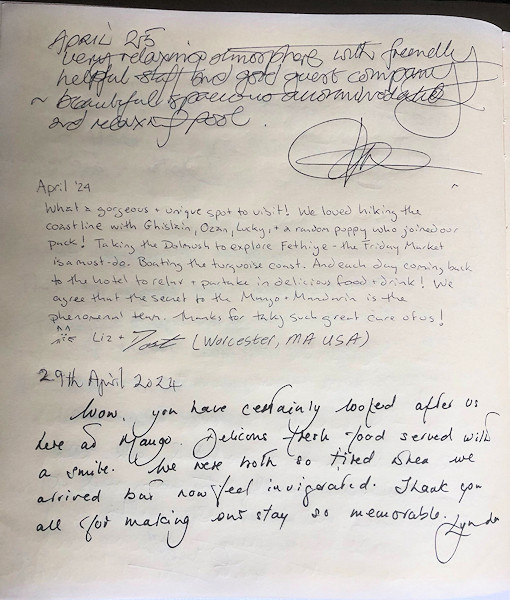 APRIL 25
very relaxing atmosphere with friendly
helpful staff and good guest company
~ beautiful spacious accommodation
and relaxing pool.
April '24
What a gorgeous + unique spot to visit! We loved hiking the
coastline with Ghislain, Ozan, Lucky, + a random puppy who joined our
pack! Taking the Dolmush to explore Fethiye - the Friday Market
is a must-do. Boating the turquoise coast. And each day coming back
to the hotel to relax + partake in delicious food + drink! We
agree that the secret to the Mango + Mandarin is the
phenomenal team. Thanks for taking such great care of us!
Liz + (Worcester, MA USA)
29th April 2024
Wow, you have certainly looked after us
here at Mango. Delicious fresh food served with
a smile. We were both so tired when we
arrived but now feel invigorated. Thank you
all for making our stay so memorable.
Lynda